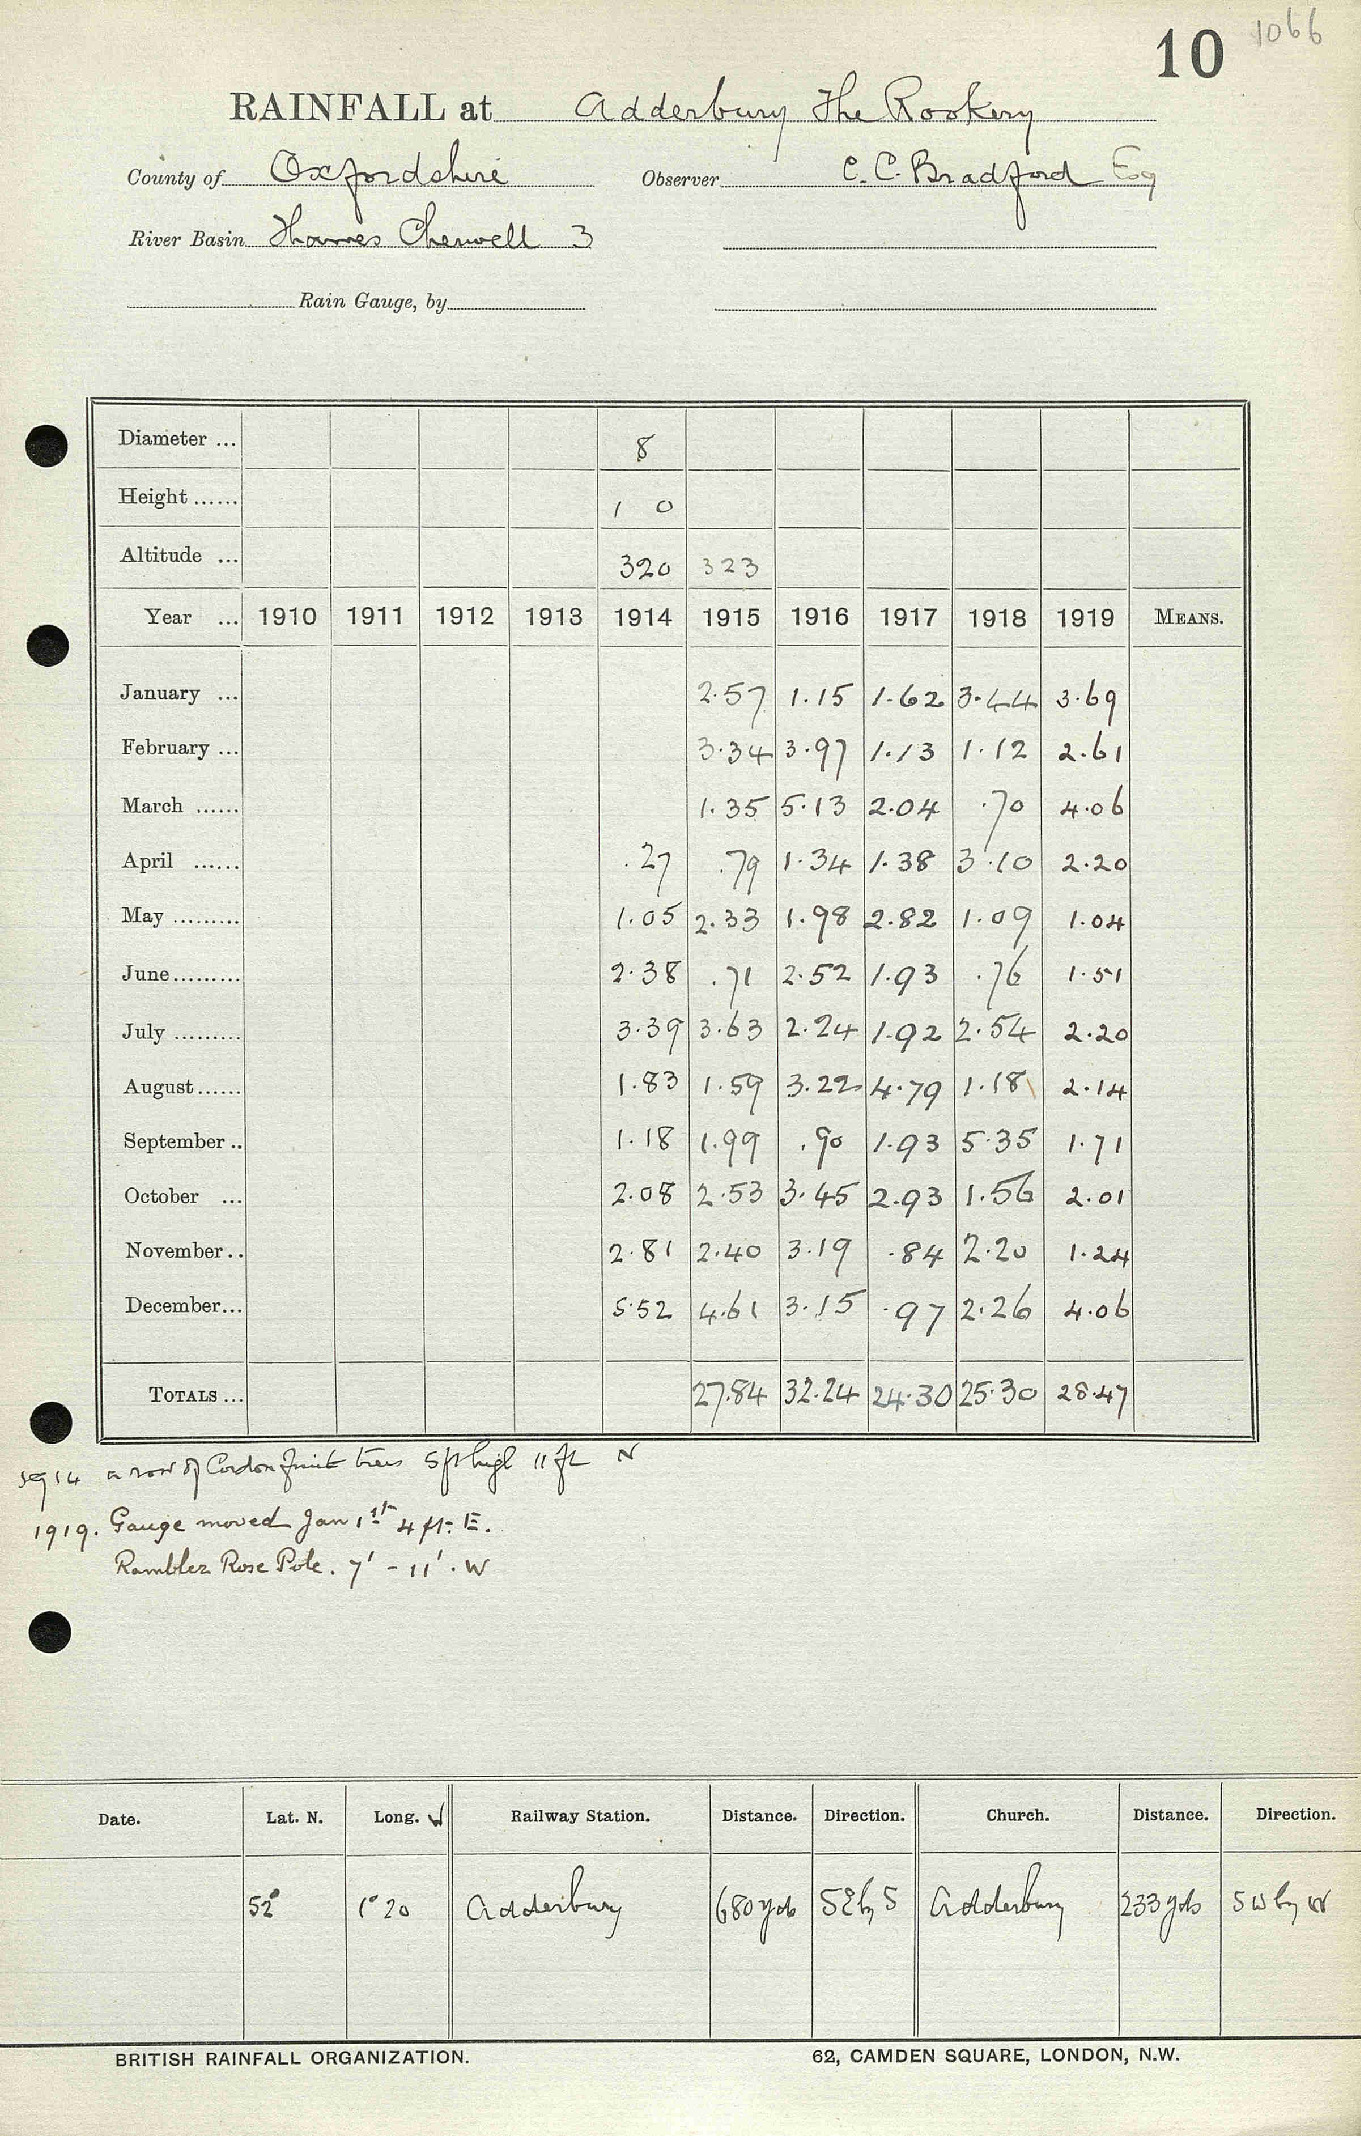 10 1066
RAINFALL at Adderbury The Rookery
County of Oxfordshire Observer C. C. Bradford Esq
River Basin Thames Cherwell 3
Rain Gauge, by
Diameter ... 8
Height ...... 1 0
Altitude ... 320 323
Year ... 1910 1911 1912 1913 1914 1915 1916 1917 1918 1919 MEANS.
January ... 2.57 1.15 1.62 3.44 3.69
February ... 3.34 3.97 1.13 1.12 2.61
March ...... 1.35 5.13 2.04 .70 4.06
April ...... .27 .79 1.34 1.38 3.10 2.20
May ......... 1.05 2.33 1.98 2.82 1.09 1.04
June......... 2.38 .71 2.52 1.93 .76 1.51
July ......... 3.39 3.63 2.24 1.92 2.54 2.20
August...... 1.83 1.59 3.22 4.79 1.18 2.14
September .. 1.18 1.99 .90 1.93 5.35 1.71
October ... 2.08 2.53 3.45 2.93 1.56 2.01
November.. 2.81 2.40 3.19 .84 2.20 1.24
December... 5.52 4.61 3.15 .97 2.26 4.06
TOTALS ... 27.84 32.24 24.30 25.30 28.47
1914 a row of Cordon fruit trees 5ft high 11 ft N
1919. Gauge moved Jan 1st 4 ft. E.
Rambler Rose Pole. 7' - 11'. W
Date. Lat. N. Long. W Railway Station. Distance. Direction. Church. Distance. Direction.
52° 1° 20 Adderbury 680 yds SE by S Adderbury 233 yds SW by W
BRITISH RAINFALL ORGANIZATION. 62, CAMDEN SQUARE, LONDON, N.W.